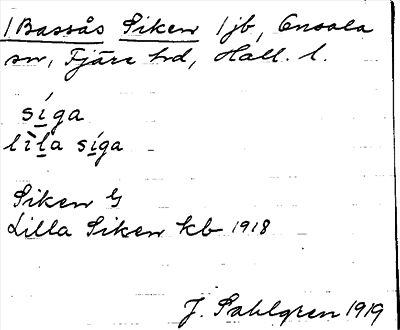 /Bassås Siken /jb, Onsala
sn, Fjäre hd, Hall. l.
síga
lìla síga
Siken G
Lilla Siken kb 1918
J. Sahlgren 1919